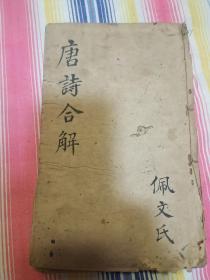 唐詩合解
佩文氏